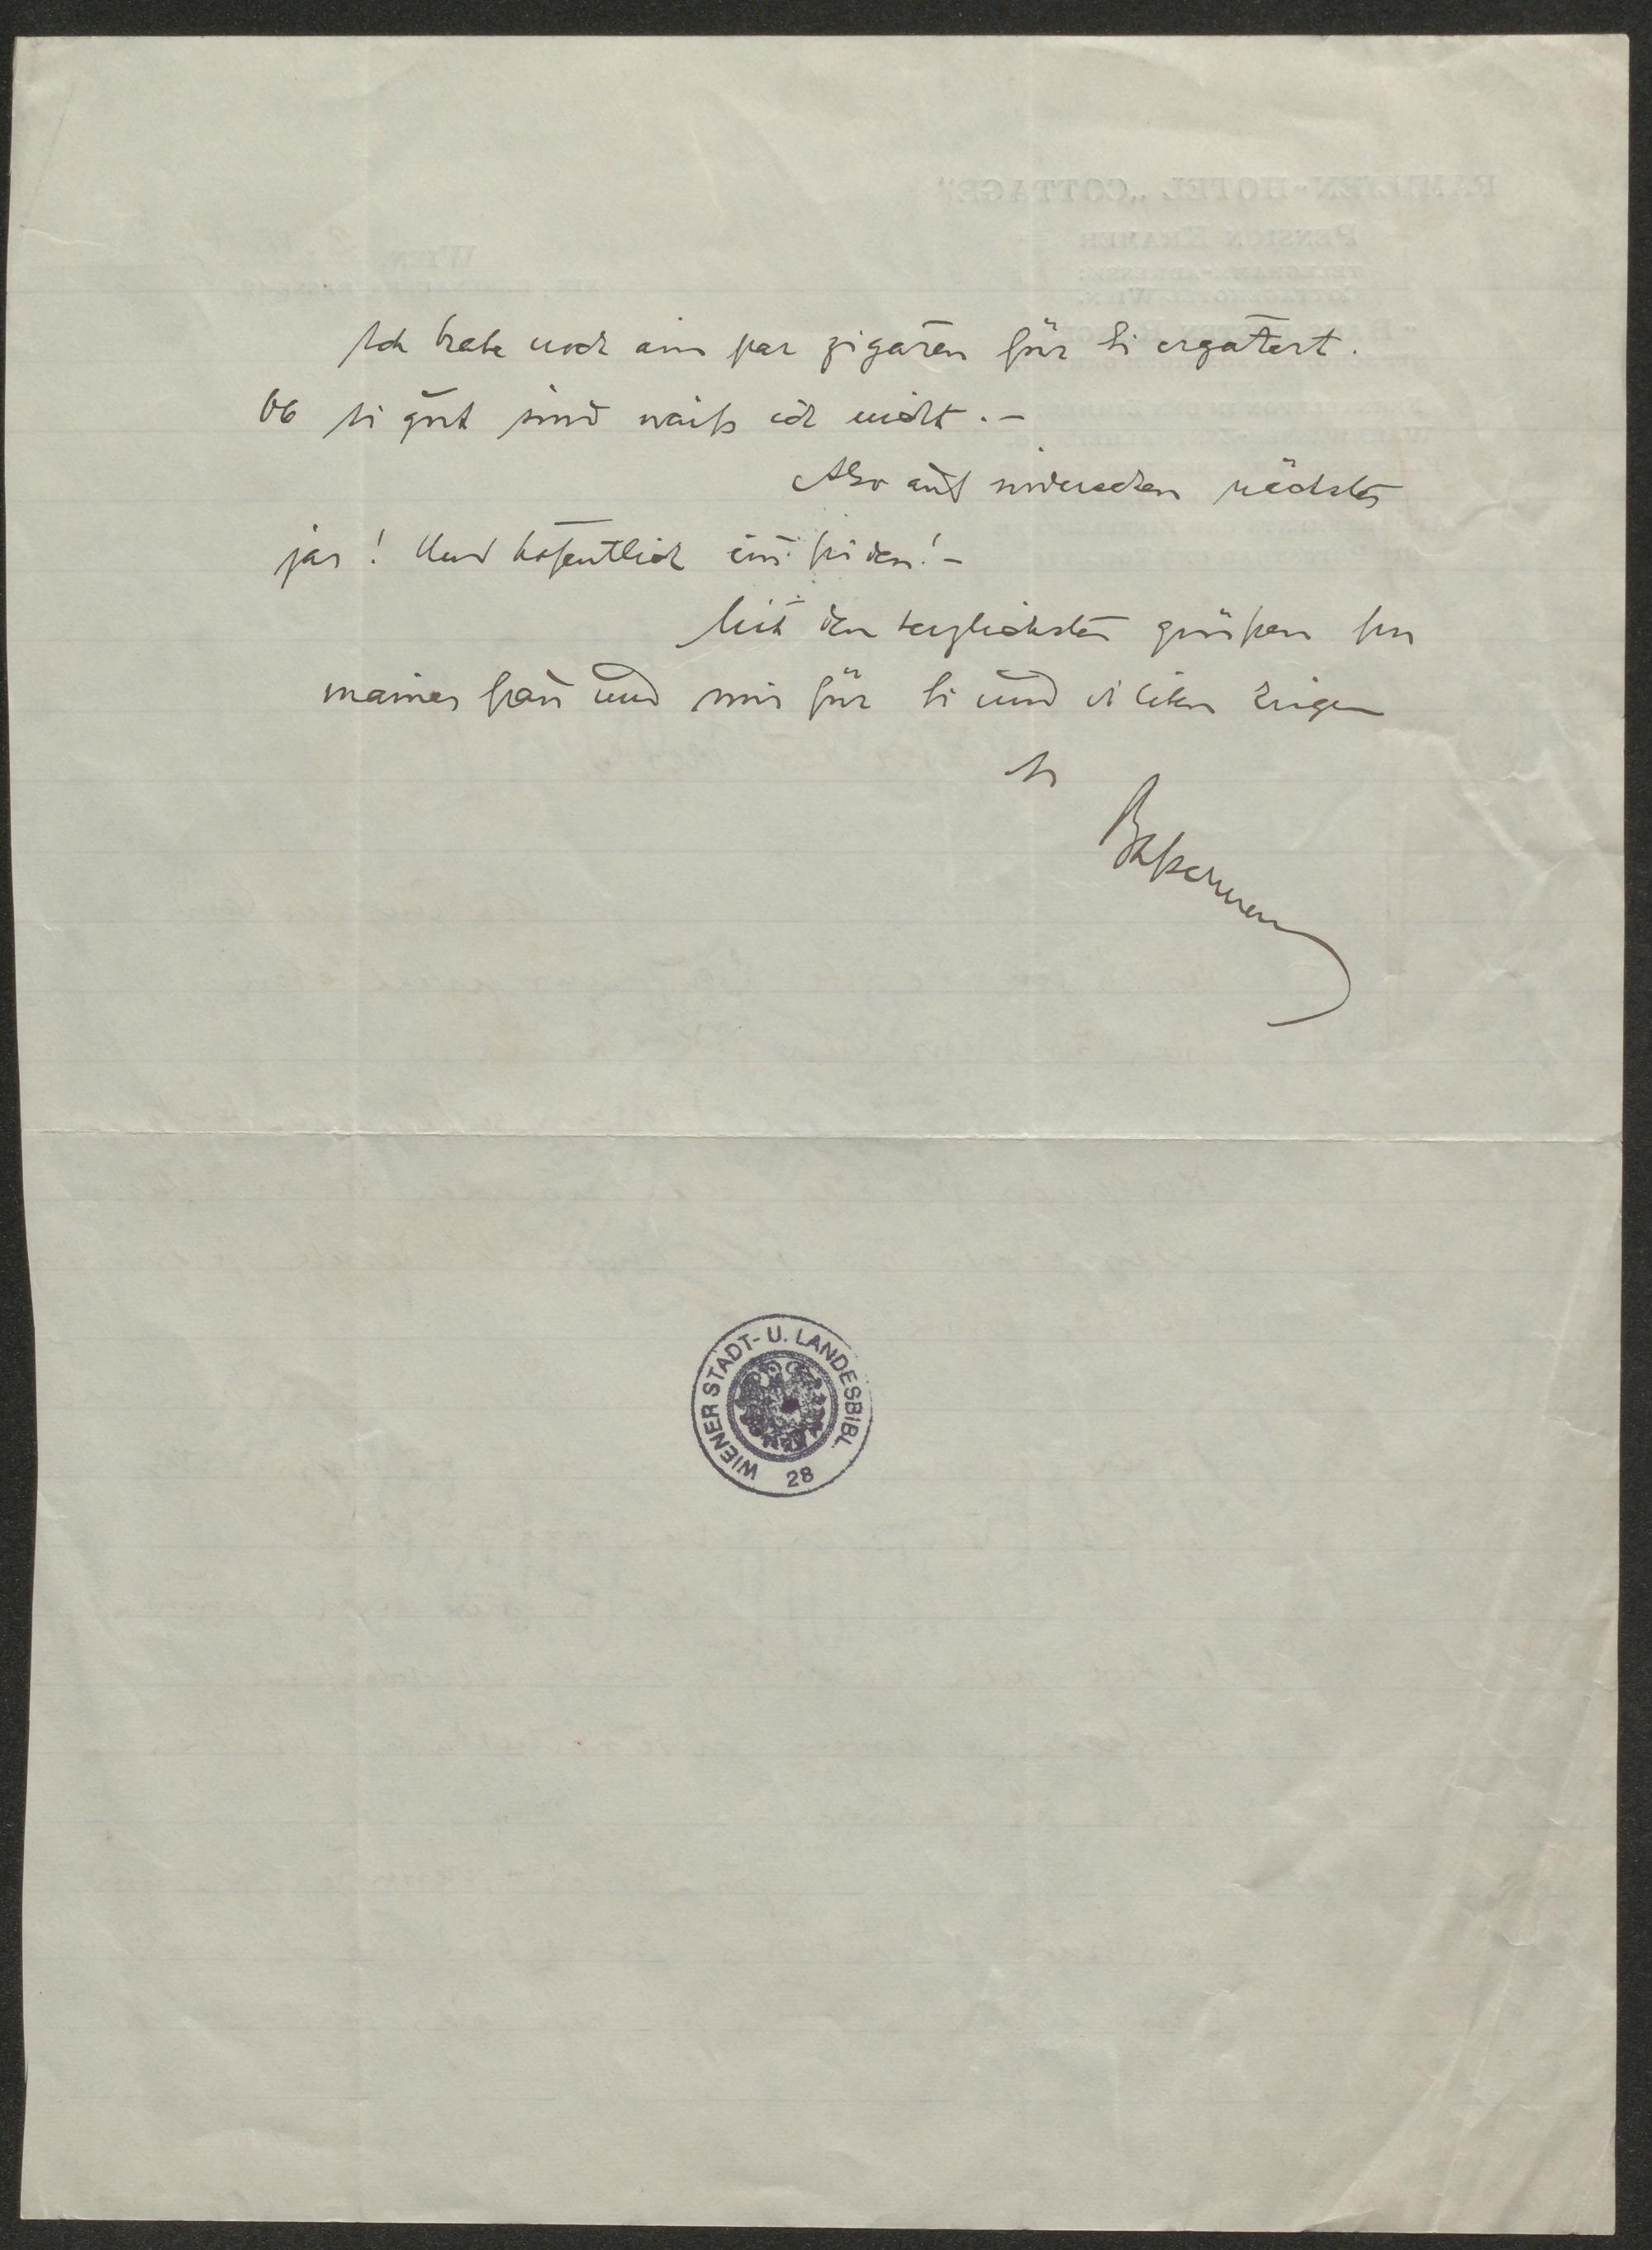 Ich habe noch ain par zigar̄en für Si ergat̄ert.
Ob si gut sind waiß ich nicht. –
Also auf widersehen nächstes
jar! Und hof̄entlich im friden! –
Mit den herzlichsten grüßen fon
mainer frau und mir für Si und di liben Irigen
Ir
Baßerman
WIENER STADT- U. LANDESBIBL.
28